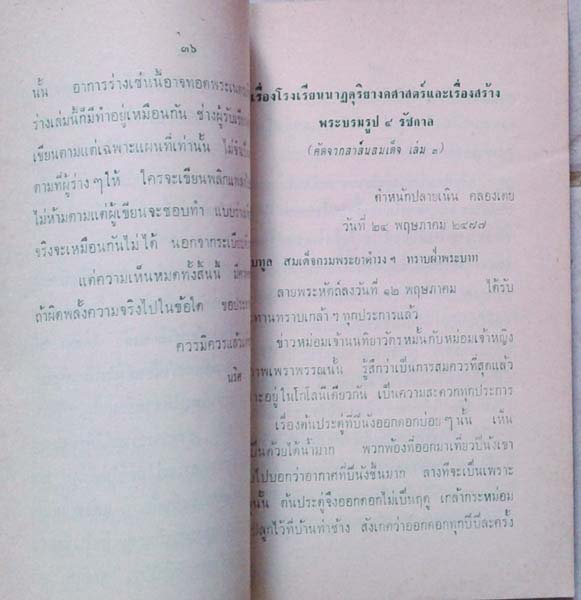 ๓๖
นั้น อาการร่างเช่นนี้อาจทอดพระเนตร
ร่างเล่มนี้ก็มีทำอยู่เหมือนกัน ช่างผู้รับ
เขียนตามแต่เฉพาะแผนที่เท่านั้น
ตามที่ผู้ร่างๆให้ ใครจะเขียนพลิก
ไม่ห้ามตามแต่ผู้เขียนจะชอบทำ แบบ
จริงจะเหมือนกันไม่ได้ นอกจากระเบียบ
แต่ความเห็นหมดทั้งสิ้นนี้
ถ้าผิดพลั้งความจริงไปในข้อใด ขอ
ควรมิควรแล้ว
นริศ
เรื่องโรงเรียนนาฏดุริยางคศาสตร์และเรื่องสร้าง
พระบรมรูป ๔ รัชกาล
(คัดจากสาส์นสมเด็จ เล่ม ๓)
ตำหนักปลายเนิน คลองเตย
วันที่ ๒๔ พฤษภาคม ๒๔๗๗
ทูล สมเด็จกรมพระยาดำรง ฯ ทราบฝ่าพระบาท
ลายพระหัตถ์ลงวันที่ ๑๒ พฤษภาคม ได้รับ
ทานทราบเกล้า ๆ ทุกประการแล้ว
ข่าวหม่อมเจ้านนทิยาวัตรหมั้นกับหม่อมเจ้าหญิง
เพราพรรณนั้น รู้สึกว่าเป็นการสมควรที่สุดแล้ว
อยู่ในโกโลนีเดียวกัน เป็นความสะดวกทุกประการ
เรื่องต้นประดู่ที่ปีนังออกดอกบ่อย ๆ นั้น เห็น
เป็นด้วยได้น้ำมาก พวกพ้องที่ออกมาเที่ยวปีนังเขา
ไปบอกว่าอากาศที่ปีนังชื้นมาก ลางทีจะเป็นเพราะ
นั้น ต้นประดู่จึงออกดอกไม่เป็นฤดู เกล้ากระหม่อม
ปลูกไว้ที่บ้านท่าช้าง สังเกตว่าออกดอกทุกปีปีละครั้ง